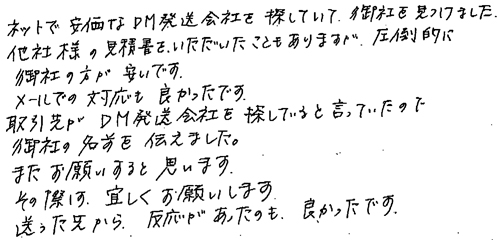 ネットで安価なDM発送会社を探していて、御社を見つけました。
他社様の見積書をいただいたこともありますが、圧倒的に
御社の方が安いです。
メールでの対応も良かったです。
取引先がDM発送会社を探していると言っていたので
御社の名前を伝えました。
またお願いすると思います。
その際は、宜しくお願いします。
送った先から、反応があったのも、良かったです。